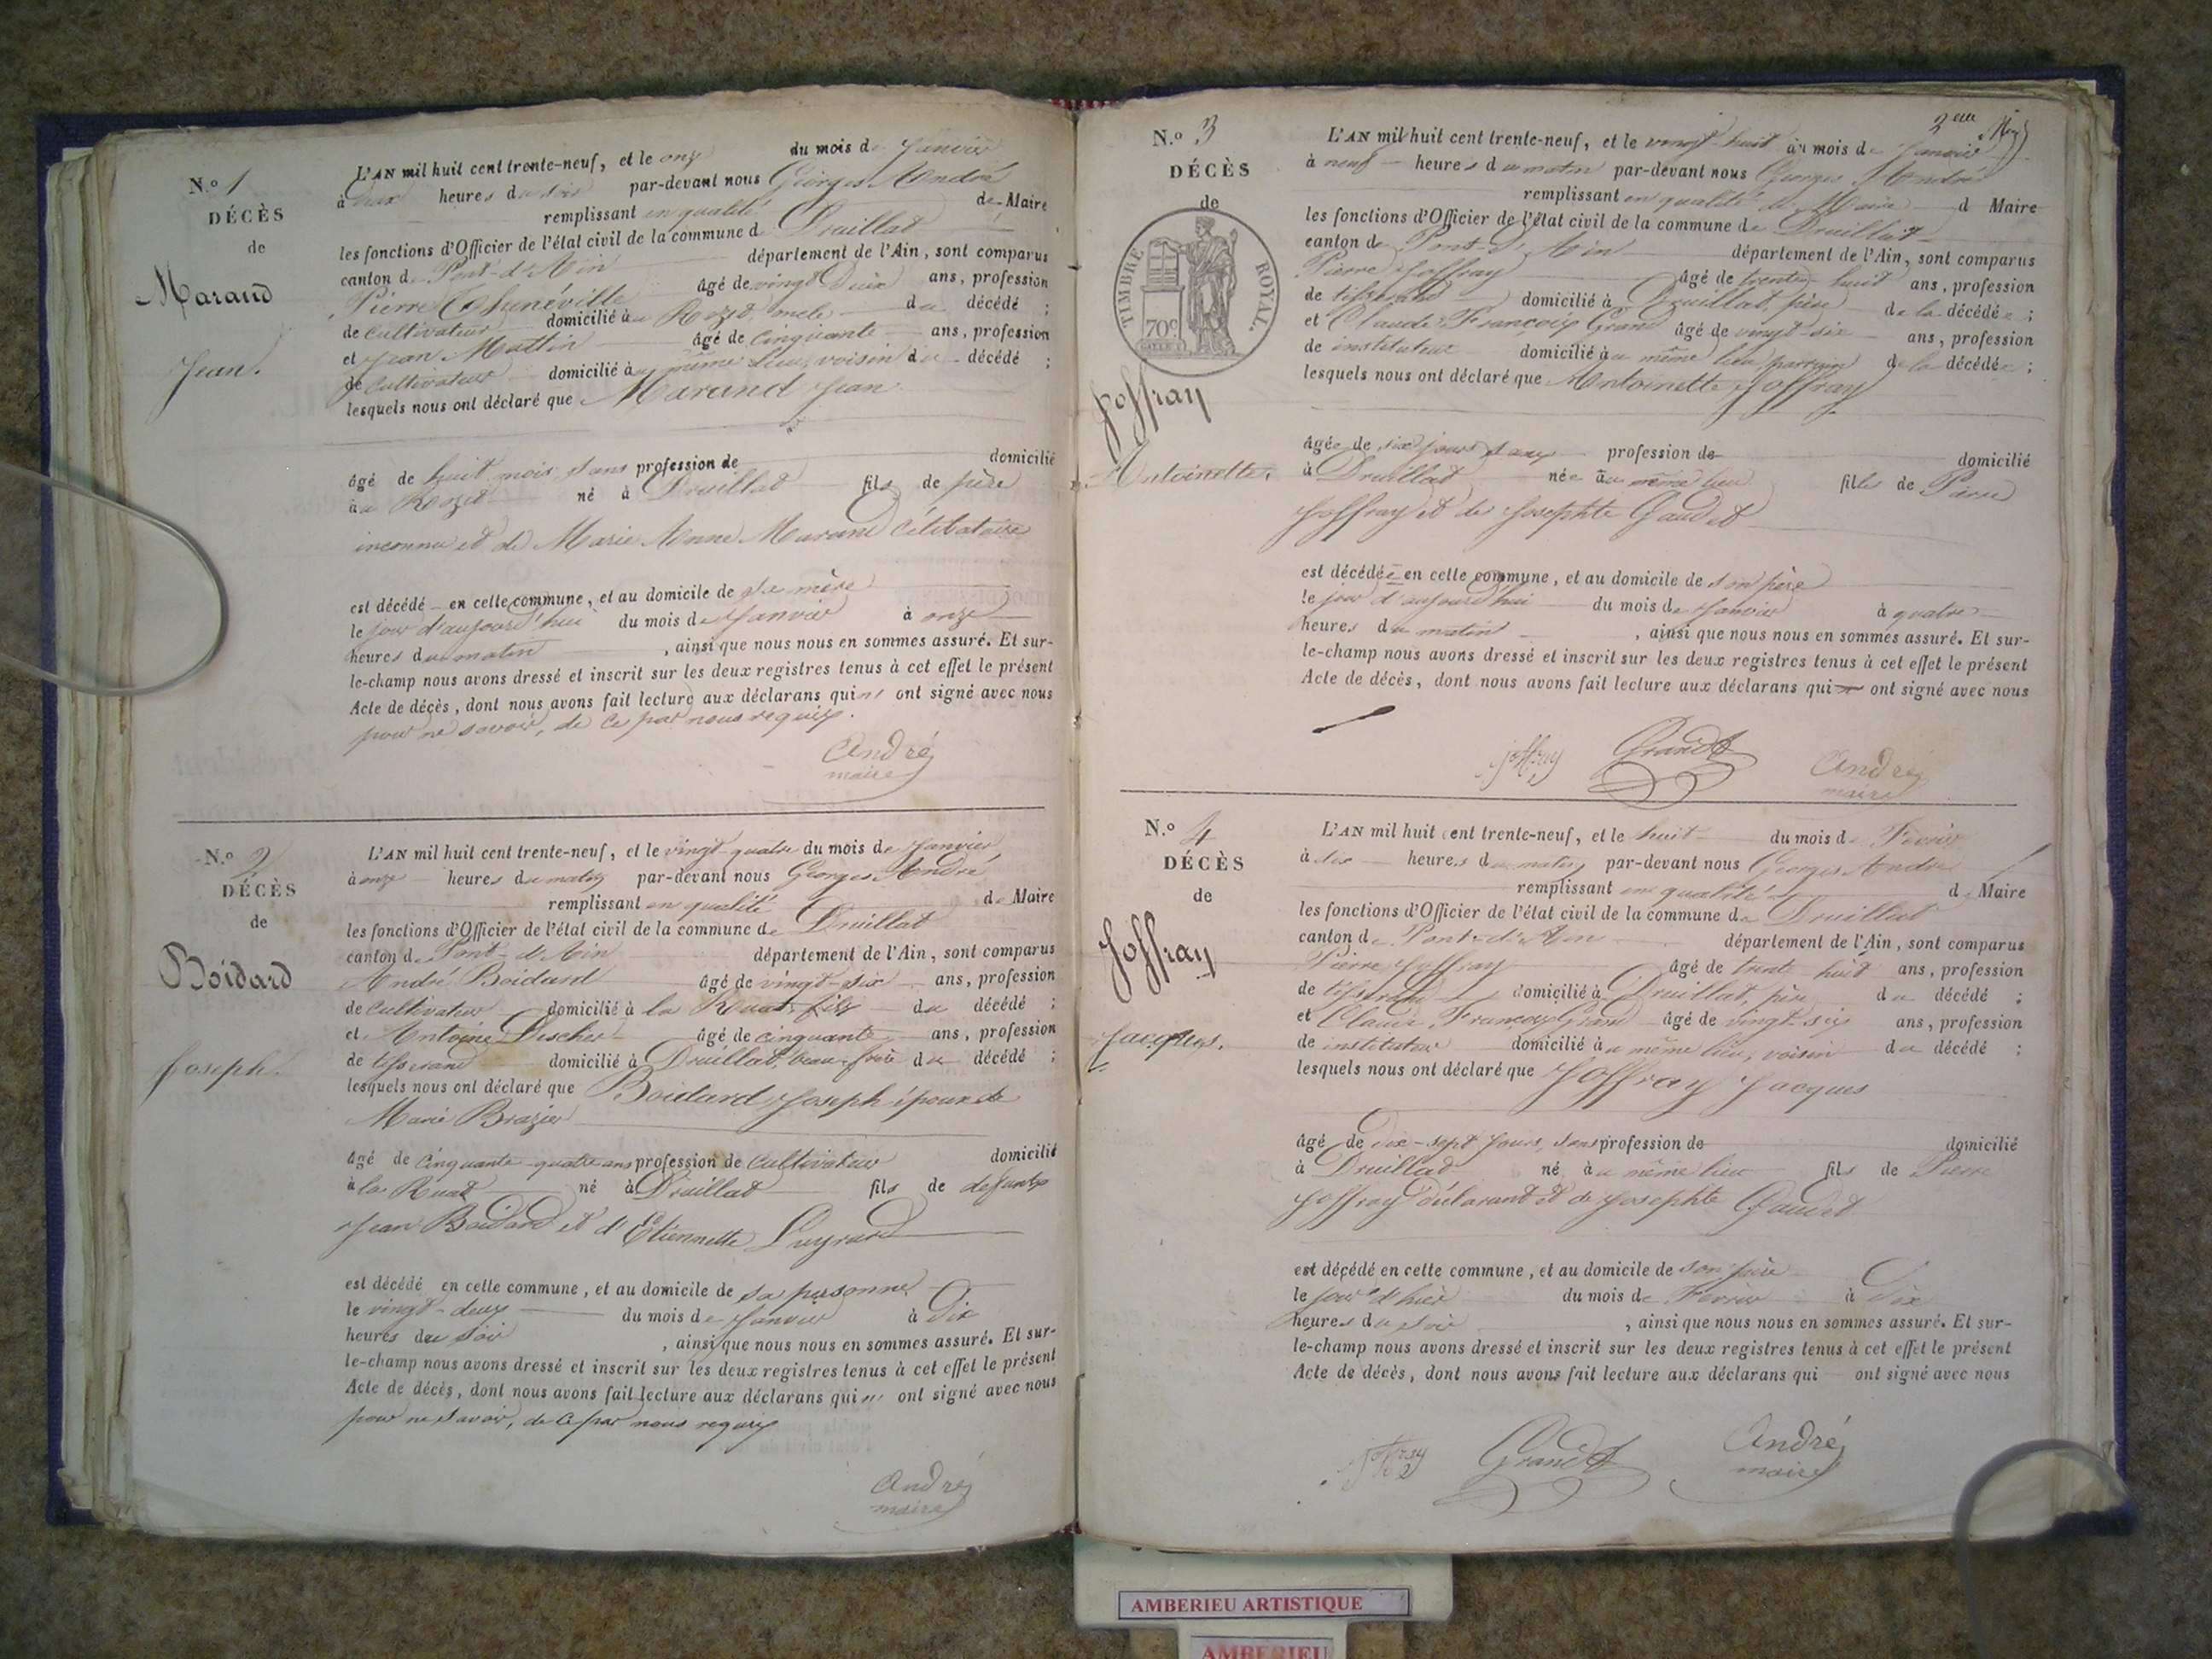 N.º 1
DÉCÈS
de
Marand
Jean.
L'AN mil huit cent trente-neuf, et le onze du mois de Janvier
à heures du soir par-devant nous Georges André
remplissant en qualité de Maire
les fonctions d'Officier de l'état civil de la commune de Druillat
canton de Pont-d'Ain département de l'Ain, sont comparus
Pierre Thenéville âgé de vingt ans, profession
de cultivateur domicilié à du décédé ;
et Jean Mattin âgé de cinquante ans, profession
de cultivateur domicilié au même lieu, voisin du décédé ;
lesquels nous ont déclaré que Marand Jean
âgé de huit mois, sans profession de domicilié
au Rozet né à Druillat fils de père
inconnu et de Marie Anne Marand Célibataire
est décédé en cette commune, et au domicile de sa mère
le jour d'aujourd'hui du mois de Janvier à onze
heures du matin , ainsi que nous nous en sommes assuré. Et sur-
le-champ nous avons dressé et inscrit sur les deux registres tenus à cet effet le présent
Acte de décès, dont nous avons fait lecture aux déclarans qui n' ont signé avec nous
pour ne savoir, de ce par nous requis.
André
maire
N.º 2
DÉCÈS
de
Boidard
Joseph.
L'AN mil huit cent trente-neuf, et le vingt-quatre du mois de Janvier
à onze heures du matin par-devant nous Georges André
remplissant en qualité de Maire
les fonctions d'Officier de l'état civil de la commune de Druillat
canton de Pont-d'Ain département de l'Ain, sont comparus
André Boidard âgé de vingt-six ans, profession
de cultivateur domicilié à la Ruat, fils du décédé ;
et Antoine âgé de cinquante ans, profession
de tisserand domicilié à Druillat, beau-frère du décédé ;
lesquels nous ont déclaré que Boidard Joseph époux de
Marie Brazier
âgé de cinquante-quatre ans profession de cultivateur domicilié
à la Ruat né à Druillat fils de défunts
Jean Boidard et d'Etiennette Luyrard
est décédé en cette commune, et au domicile de sa personne
le vingt-deux du mois de Janvier à Dix
heures du soir , ainsi que nous nous en sommes assuré. Et sur-
le-champ nous avons dressé et inscrit sur les deux registres tenus à cet effet le présent
Acte de décès, dont nous avons fait lecture aux déclarans qui n' ont signé avec nous
pour ne savoir, de ce par nous requis
André
maire
N.º 3
DÉCÈS
de
TIMBRE ROYAL.
70c
Joffray
Antoinette.
L'AN mil huit cent trente-neuf, et le vingt-huit du mois de Janvier
à neuf heures du matin par-devant nous Georges André
remplissant en qualité de Maire d Maire
les fonctions d'Officier de l'état civil de la commune de Druillat
canton de Pont-d'Ain département de l'Ain, sont comparus
Pierre Joffray âgé de trente-huit ans, profession
de tisserand domicilié à Druillat, père de la décédée ;
et Claude François Grand âgé de vingt-six ans, profession
de instituteur domicilié au même lieu, parrain de la décédée ;
lesquels nous ont déclaré que Antoinette Joffray
âgée de six jours, sans profession de domicilié
à Druillat née au même lieu fille de Pierre
Joffray et de Josephte Gaudet
est décédée en cette commune, et au domicile de son père
le jour d'aujourd'hui du mois de Janvier à quatre
heures du matin , ainsi que nous nous en sommes assuré. Et sur-
le-champ nous avons dressé et inscrit sur les deux registres tenus à cet effet le présent
Acte de décès, dont nous avons fait lecture aux déclarans qui ont signé avec nous
joffray Grand André
maire
N.º 4
DÉCÈS
de
Joffray
Jacques.
L'AN mil huit cent trente-neuf, et le huit du mois de Février
à heures du matin par-devant nous Georges André
remplissant en qualité de Maire
les fonctions d'Officier de l'état civil de la commune de Druillat
canton de Pont-d'Ain département de l'Ain, sont comparus
Pierre Joffray âgé de trente-huit ans, profession
de tisserand domicilié à Druillat, père du décédé ;
et Claude François Grand âgé de vingt-six ans, profession
de instituteur domicilié au même lieu, voisin du décédé ;
lesquels nous ont déclaré que Joffray Jacques
âgé de dix-sept jours, sans profession de domicilié
à Druillat né au même lieu fils de Pierre
Joffray déclarant et de Josephte Gaudet
est décédé en cette commune, et au domicile de son père
le jour d'hier du mois de Février à Dix
heures du soir , ainsi que nous nous en sommes assuré. Et sur-
le-champ nous avons dressé et inscrit sur les deux registres tenus à cet effet le présent
Acte de décès, dont nous avons fait lecture aux déclarans qui ont signé avec nous
joffray Grand André
maire
AMBERIEU ARTISTIQUE
AMBERIEU